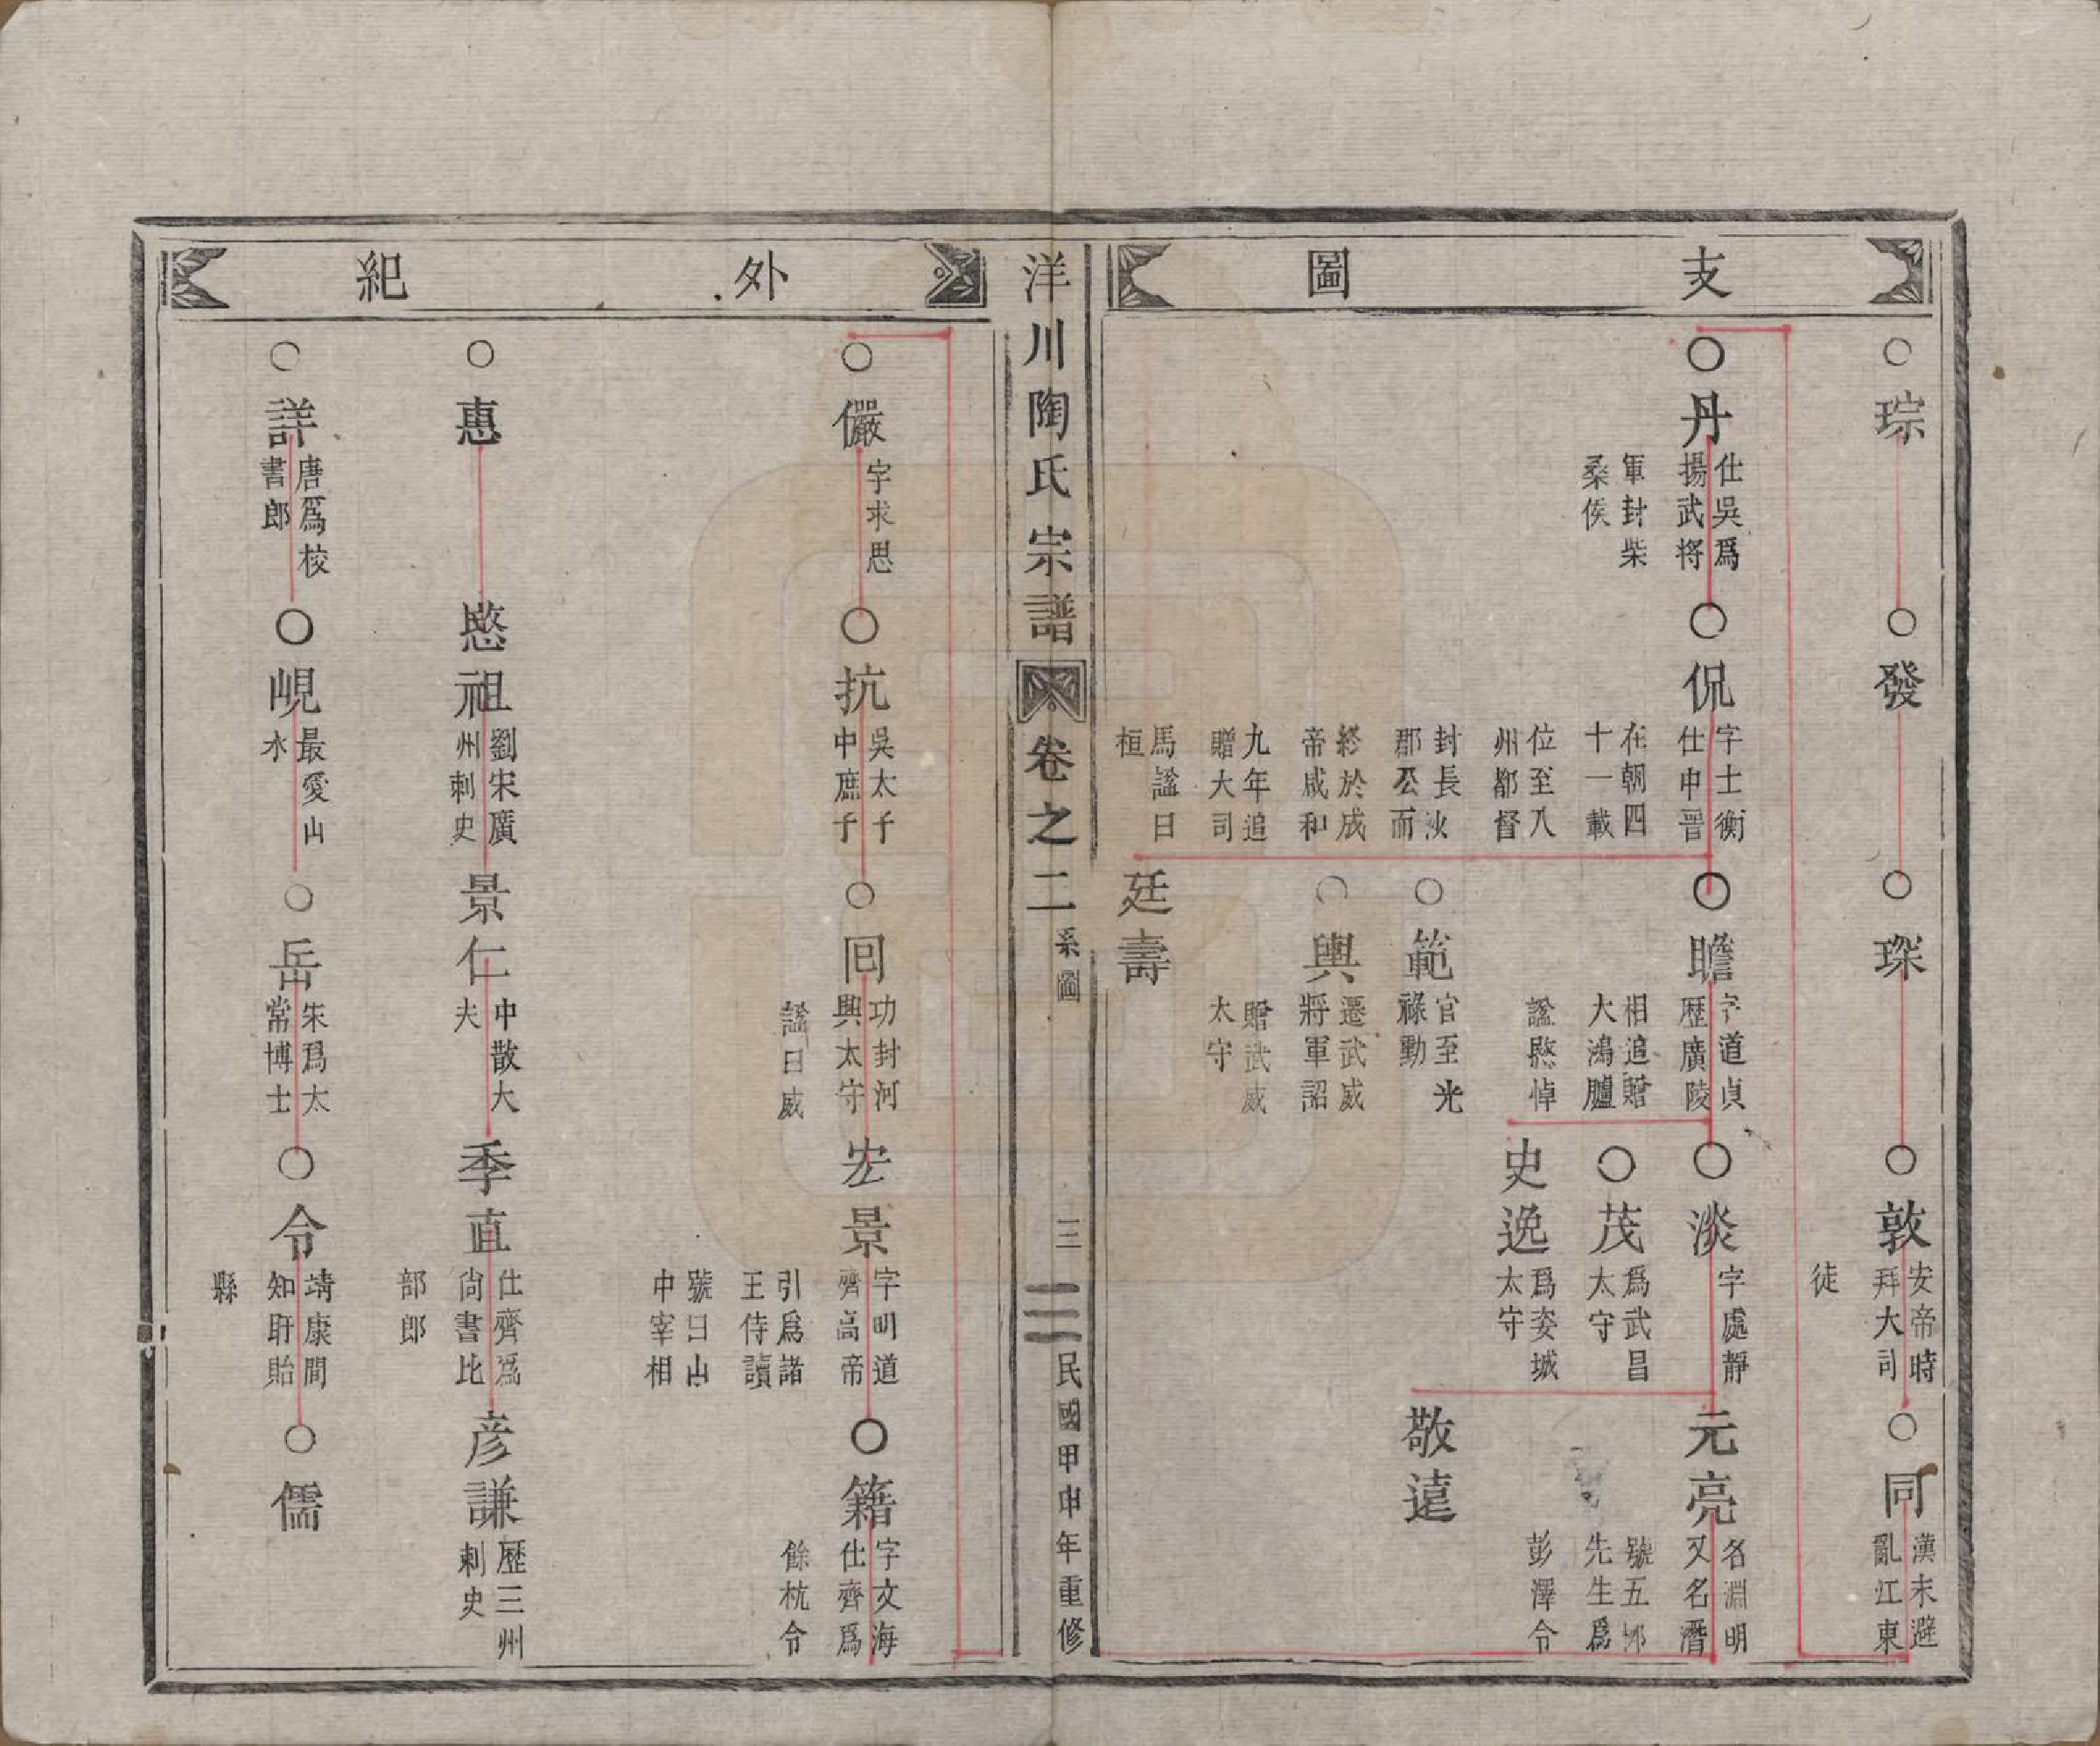 支圖
○琮
○發
○琛
○敦
安帝時
拜大司
徒
○同
漢末避
亂江東
○丹
仕吳爲
揚武將
軍封柴
桑侯
○侃
字士衡
仕申晉
在朝四
十一載
位至八
州都督
封長沙
郡公而
終於成
帝咸和
九年追
贈大司
馬諡曰
桓
○瞻
字道貞
歷廣陵
相追贈
大鴻臚
諡愍悼
○範
官至光
祿勳
○輿
遷武威
將軍詔
贈武威
太守
廷壽
○淡
字處靜
○茂
爲武昌
太守
史逸
爲姿城
太守
元亮
名淵明
又名潛
號五柳
先生爲
彭澤令
敬遠
洋川陶氏宗譜 卷之二 系圖 三 民國甲申年重修
外紀
○儼
字求思
○抗
吳太子
中庶子
○回
功封河
興太守
諡曰威
宏景
字明道
齊高帝
引爲諸
王侍讀
號曰山
中宰相
○籍
字文海
仕齊爲
餘杭令
○惠
愍祖
劉宋廣
州刺史
景仁
中散大
夫
季直
仕齊爲
尚書比
部郎
彥謙
歷三州
刺史
○詳
唐爲校
書郎
○峴
最愛山
水
○岳
朱爲太
常博士
○令
靖康間
知盱眙
縣
○儒